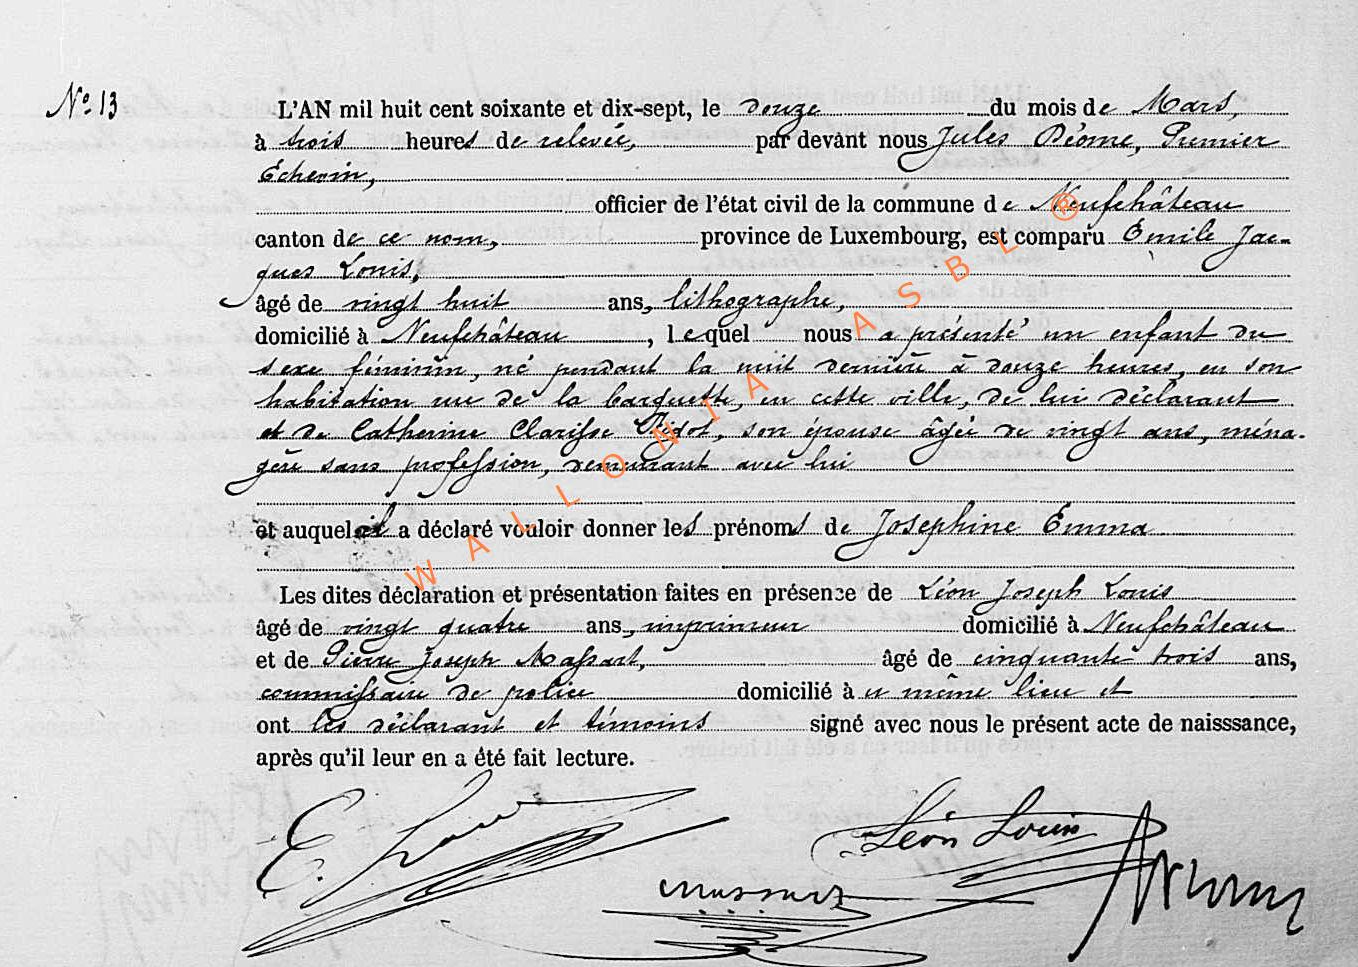 N° 13
L'AN mil huit cent soixante et dix-sept, le douze du mois de Mars,
à trois heures de relevée, par devant nous Jules Déome, Premier
Echevin,
officier de l'état civil de la commune de Neufchâteau
canton de ce nom, province de Luxembourg, est comparu Emile Jac-
ques Louis,
âgé de vingt huit ans, lithographe,
domicilié à Neufchâteau, lequel nous a présenté un enfant du
sexe féminin, né pendant la nuit dernière à douze heures, en son
habitation rue de la barquette, en cette ville, de lui déclarant
et de Catherine Clarisse, son épouse âgée de vingt ans, ména-
gère sans profession, demeurant avec lui
et auquel il a déclaré vouloir donner les prénoms de Joséphine Emma
Les dites déclaration et présentation faites en présence de Léon Joseph Louis
âgé de vingt quatre ans, imprimeur domicilié à Neufchâteau
et de Pierre Joseph Massart, âgé de cinquante trois ans,
commissaire de police domicilié à u même lieu et
ont les déclarant et témoins signé avec nous le présent acte de naisssance,
après qu'il leur en a été fait lecture.
E. Louis
Léon Louis
Massart
WALLONIA ASBL ®